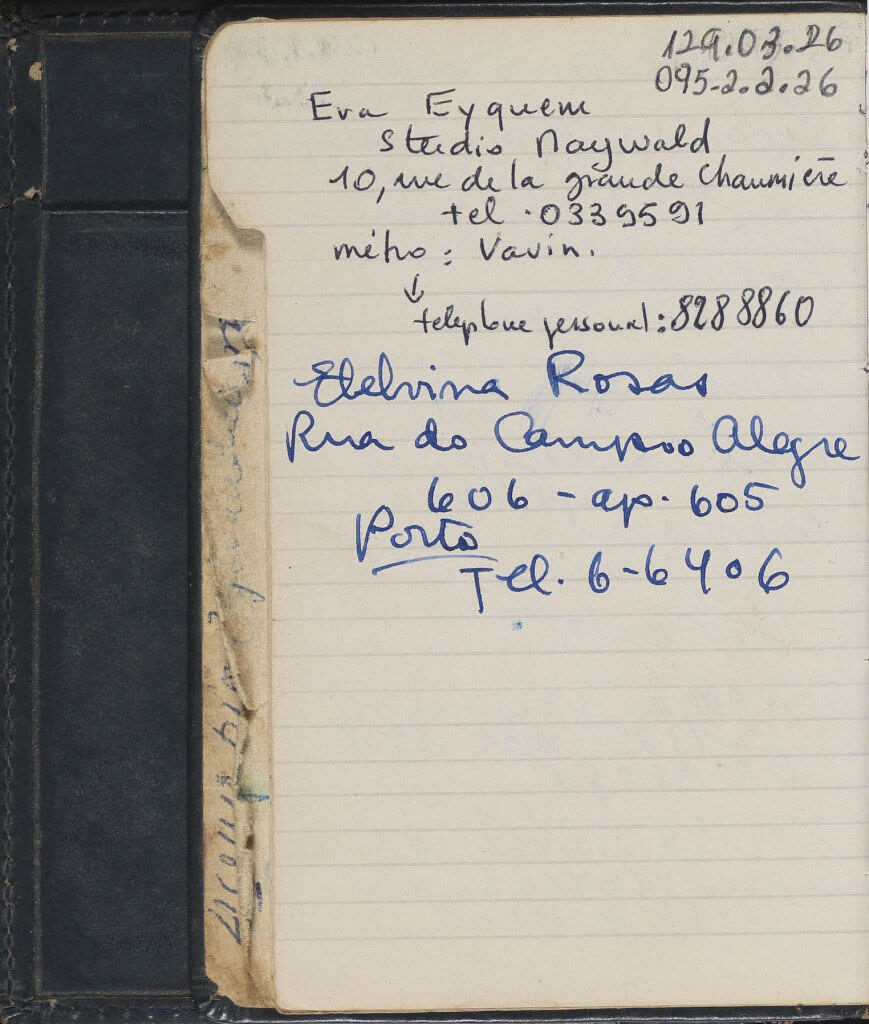 129.03.26
095-2.2.26
Eva Eyquem
Studio Maywald
10, rue de la grande Chaumière
tel. 0339591
métro : Vavin.
↓
telephone personal: 8288860
Etelvina Rosas
Rua do Campo Alegre
606 - ap. 605
Porto
Tel. 6-6406